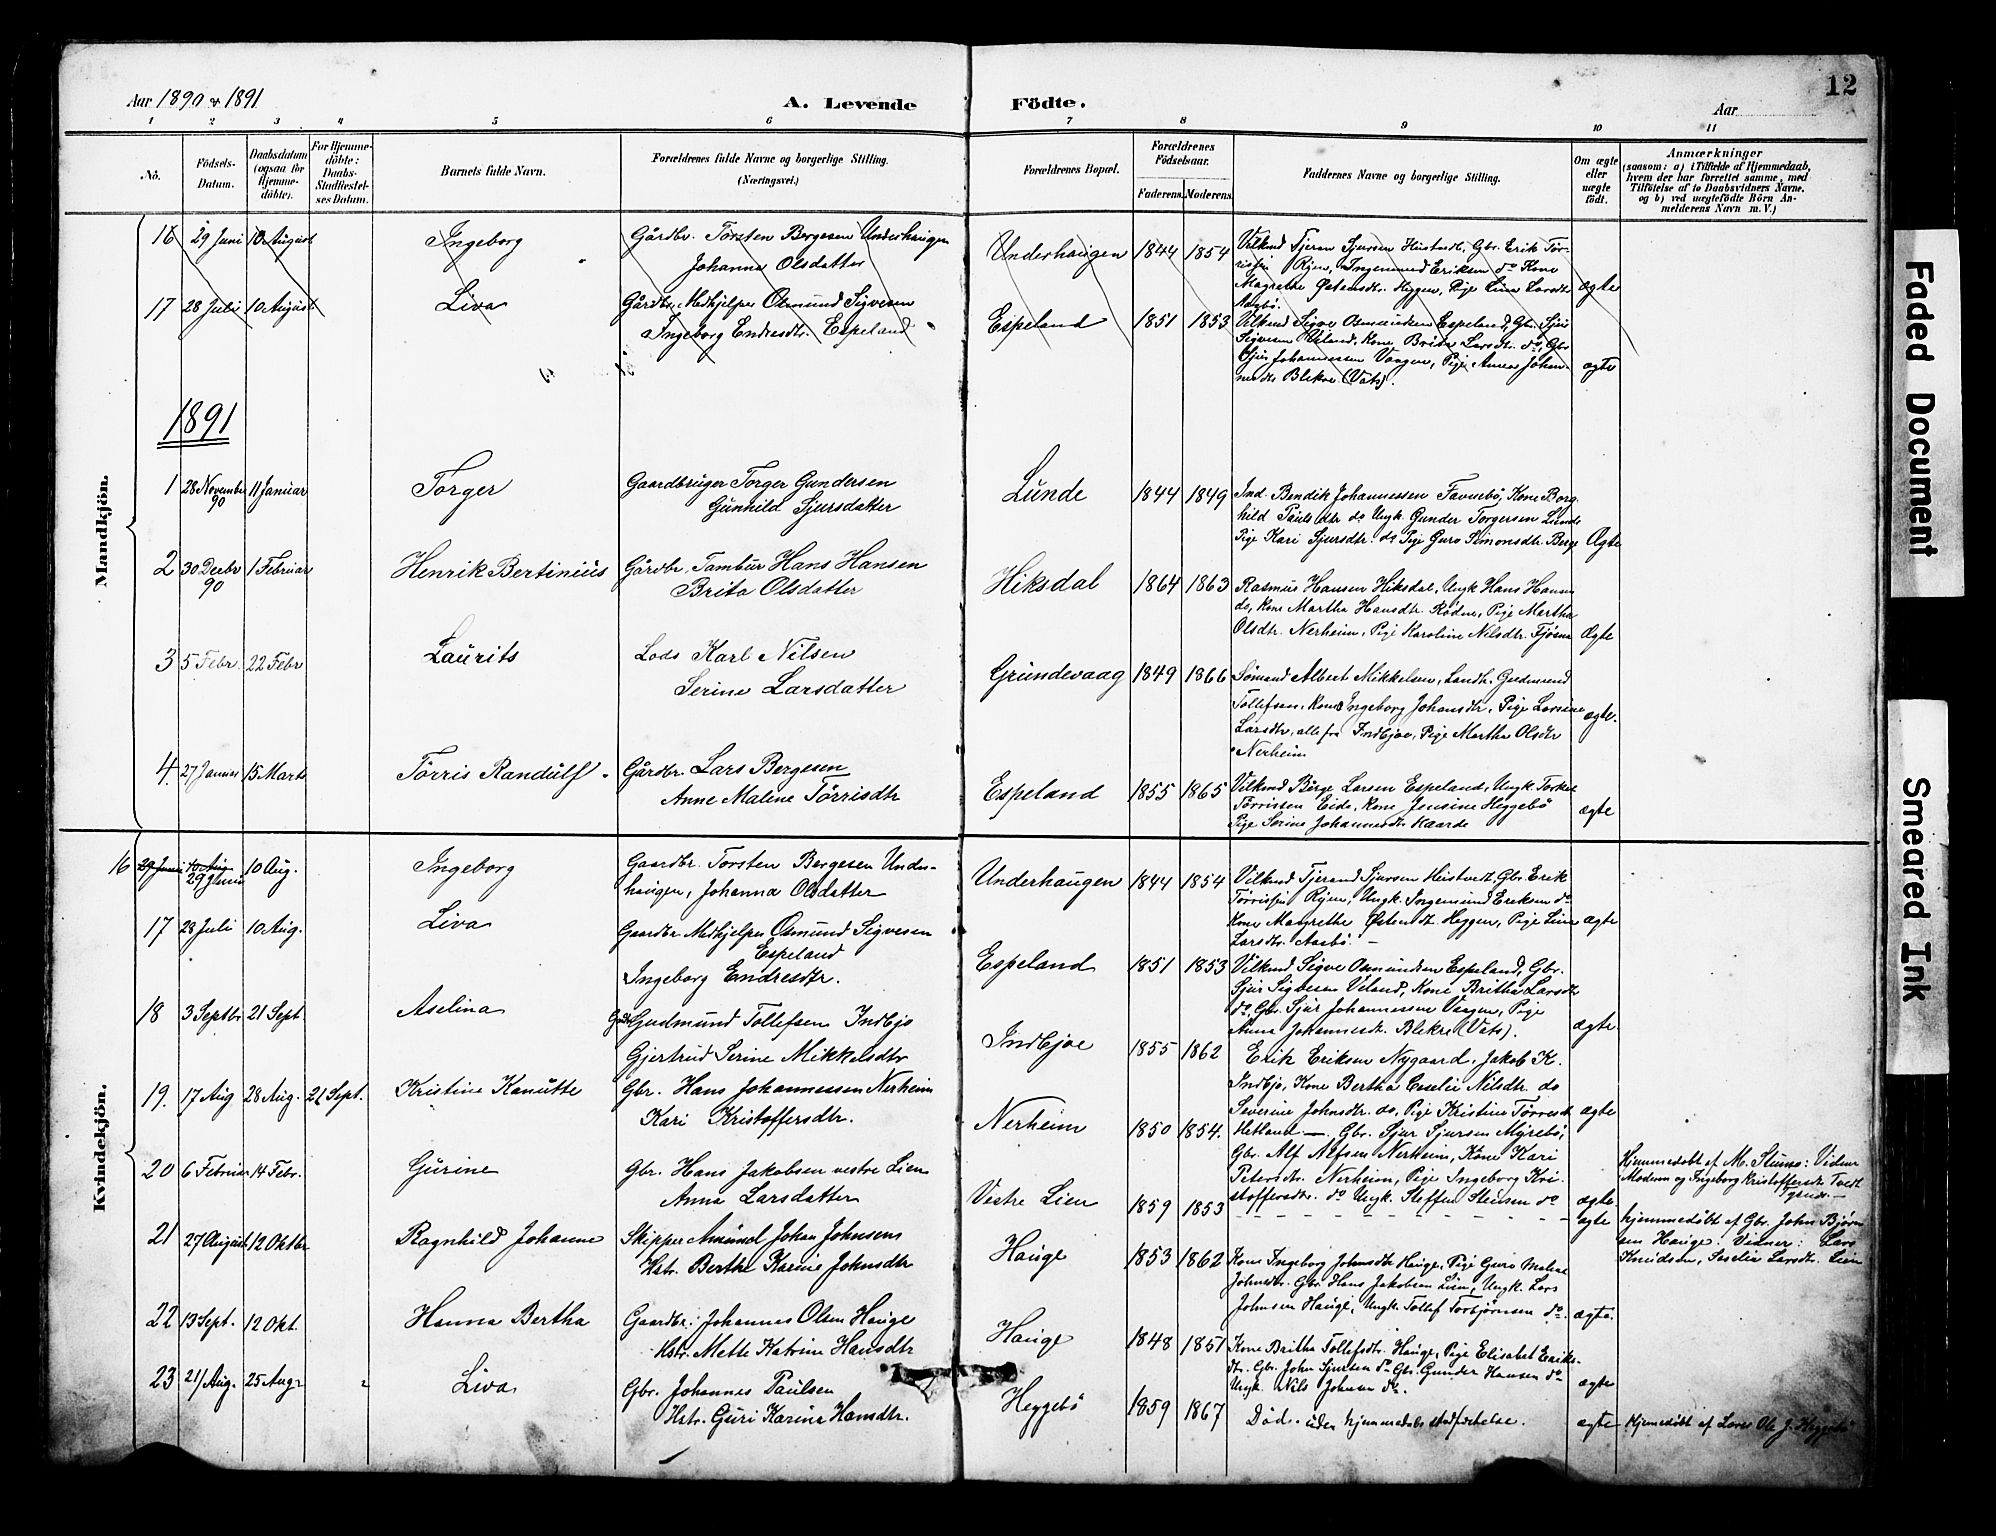 Aar 1890 & 1891
A. Levende Födte.
Aar
12
1 2 3 4 5 6 7 8 9 10 11
No.
Födsels-Datum.
Daabsdatum (ogsaa for Hjemme-döbte).
For Hjemme-döbte: Daabs-Stadfæstel-ses Datum.
Barnets fulde Navn.
Forældrenes fulde Navne og borgerlige Stilling.
(Næringsvei.)
Forældrenes Bopæl.
Forældrenes Födselsaar.
Faderens. Moderens.
Faddernes Navne og borgerlige Stilling.
Om ægte eller uægte födt.
Anmærkninger
(saasom: a) i Tilfælde af Hjemmedaab,
hvem der har forrettet samme, med
Tilföielse af to Daabsvidners Navne,
og b) ved uægtefödte Börn An-
melderens Navn m. V.)
16 29 Juni 10 August Ingeborg Gårdbr. Torsten Bergesen Underhaugen
Johanna Olsdatter
Underhaugen 1844 1854
Vilkmd Tjeran Sjursen Hustvedt, Gbr. Erik Tør-
Rijen, Ingemund Eriksen do Kone
Magrethe Østensdtr. Heggen, Pige Lina Larsdtr
ægte
17 28 Juli 10 August Liva Gårdbr. Medhjelper Osmund Sigvesen
Ingeborg Endresdtr. Espeland
Espeland 1851 1853
Vilkmd Sigve Osmundsen Espeland, Gbr. Sjur
Sigvesen Veland, Kone Britha Larsdtr. do, Gbr
Sjur Johannessen Vaagen, Pige Anna Johan-
nesdtr Blekre (Vats).
ægte
1891
Mandkjön.
1 28 November 90 11 Januar Torger Gaardbruger Torger Gundersen
Gunhild Sjursdatter
Lunde 1844 1849
Ind. Bendik Johannessen Favnebø, Kone Borg-
hild Pauls dtr do Ungk. Gunder Torgersen Lunde
Pige Kari Sjursdtr. do Pige Guro Simonsdtr. Berge
Ægte
2 30 Decbr 90 1 Februar Henrik Bertinius Gårdbr. Tambur Hans Hansen
Brita Olsdatter
Hiksdal 1864 1863
Rasmus Hansen Hiksdal, Ungk Hans Hansen
do, Kone Martha Hansdtr. Røden, Pige Martha
Olsdtr. Nerheim, Pige Karoline Nilsdtr. Fjøsne
Ægte
3 5 Febr. 22 Febr Laurits Lods Karl Nilsen
Serine Larsdatter
Grundevaag 1849 1866
Sømand Albert Mikkelsen, Landh. Gudmund
Tollefsen, Kone Ingeborg Johansdtr, Pige Lavine
Larsdtr, alle fra Indbjoe, Pige Martha Olsdtr
Nerheim
ægte.
4. 27 Januar 15 Marts Tørris Randulf. Gårdbr. Lars Bergesen
Anne Malene Tørrisdtr
Espeland 1855 1865
Vilkmd Børge Larsen Espeland, Ungk. Torkel
Tørrissen Eide, Kone Jensine Heggebø
Pige Serine Johannesdtr. Kaarde
ægte
Kvindekjön.
16 29 Juni 10 Aug 29 Juni 10 Aug. Ingeborg Gaardbr. Torsten Bergesen Under-
haugen, Johanna Olsdatter
Underhaugen 1844 1854
Vilkmd Tjerand Sjursen Hustvedt, Gbr. Erik
Rijen, Ungk. Ingemund Eriksen do
Kone Margrethe Østensdtr. Heggen, Pige Lina
Larsdtr. Aasbø. —
ægte
17 28 Juli 10 Aug. Liva Gaardbr Medhjelper Osmund Sigvesen
Espeland
Ingeborg Endresdtr.
Espeland 1851 1853
Vilkmd. Sigve Osmundsen Espeland, Gbr.
Sjur Sigvesen Veland, Kone Britha Larsdtr
do, Gbr. Sjur Johannessen Vaagen, Pige
Anna Johannesdtr. Blekre (Vats).
ægte
18 3 Septbr 21 Sept Aselina Gudmund Tollefsen Indbjo
Gjertrud Serine Mikkelsdtr
Indbjoe 1855 1862
Erik Eriksen Nygaard, Jakob K.
Indbjo, Kone Bertha Cecelie Nilsdtr. do
Severine Johnsdtr. do, Pige Kristine Tørresdtr
Hetland —
ægte
19. 17 Aug 28 Aug. 21 Sept. Kristine Kanutte Gbr. Hans Johannessen Nerheim
Kari Kristoffersdtr.
Nerheim 1850 1854.
Gbr. Sjur Sjursen Myrebø,
Gbr. Alf Alfsen Nerheim, Kone Kari
Petersdtr. Nerheim, Pige Ingeborg Kri-
stoffersdtr. do Ungk. Steffen Stensen do
ægte
Hjemmedøbt af M. Stumo: Vidner
Moderen og Ingeborg Kristoffersdtr Tvedt
20 6 Februar 14 Febr. Gurine Gbr. Hans Jakobsen vestre Lien
Anna Larsdatter
Vestre Lien 1859 1853
— — — — — — —
ægte
hjemmedøbt af Gbr. John Bjørn
sen Hauge: Vidner: Lars
Knudsen, Seselie Larsdtr. Lien
21 27 August 12 Oktbr Ragnhild Johanne Skipper Amund Johan Johnsens
Hstr. Berthe Karine Johnsdtr
Hauge 1853 1862
Kone Ingeborg Johnsdtr Hauge, Pige Guro Malene
Johnsdtr. Gbr Hans Jakobsen Lien, Ungk. Lars
Johnsen Hauge, Ungk. Tollef Torbjørnsen do.
ægte.
22 13 Sept. 12 Okt. Hanna Bertha Gaardbr. Johannes Olsen Hauge
Hstr. Mette Katrine Hansdtr
Hauge 1848 1851
Kone Britha Tollefsdtr. Hauge, Pige Elisabet Eriks-
dtr. Gbr. John Sjursen do Gbr. Gunder Hansen do
Ungk. Nils Johnsen do.
ægte
23 21/Aug. 25 Aug. Liva Gbr. Johannes Paulsen
Hstr. Guri Karine Hansdtr.
Heggebø 1859 1867
Død. uden hjemmedabs stadfæstelse.
ægte
Hjemmedøbt af Lærer Ole J. Heggebø
Faded Document
Smeared Ink